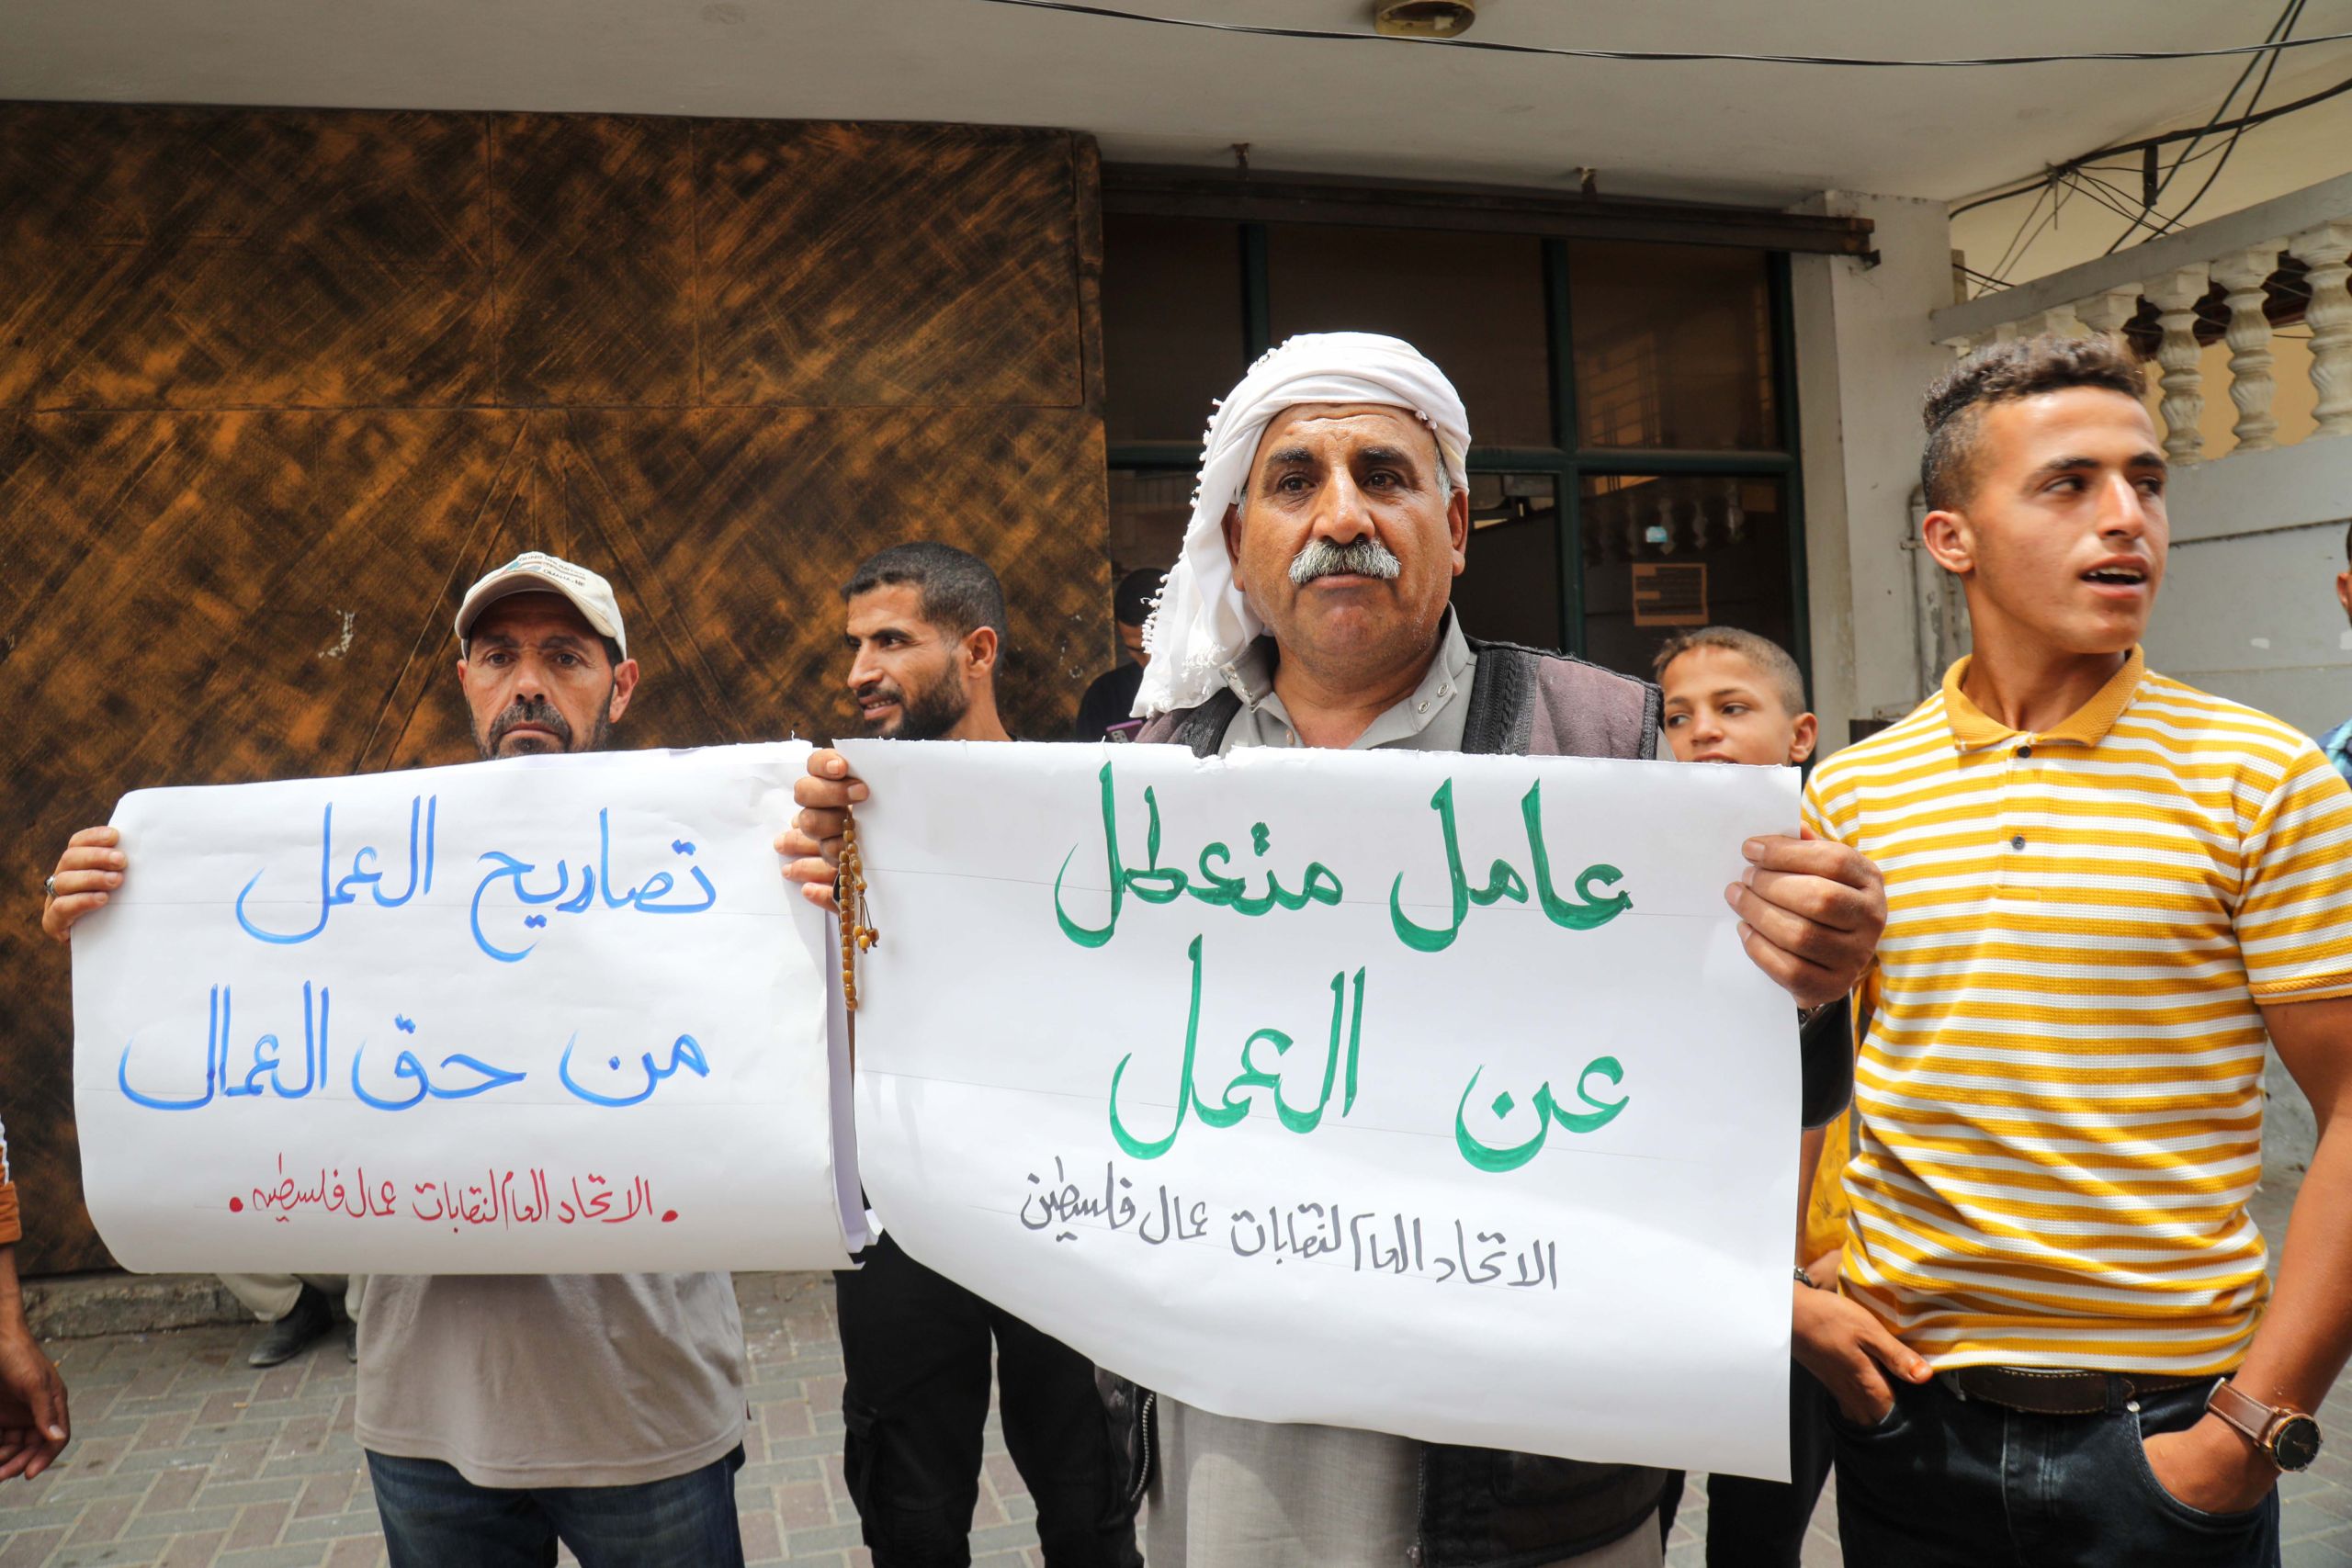 عامل متعطل
عن العمل
الاتحاد العام لنقابات عمال فلسطين
تصاريح العمل
من حق العمال
الاتحاد العام لنقابات عمال فلسطين